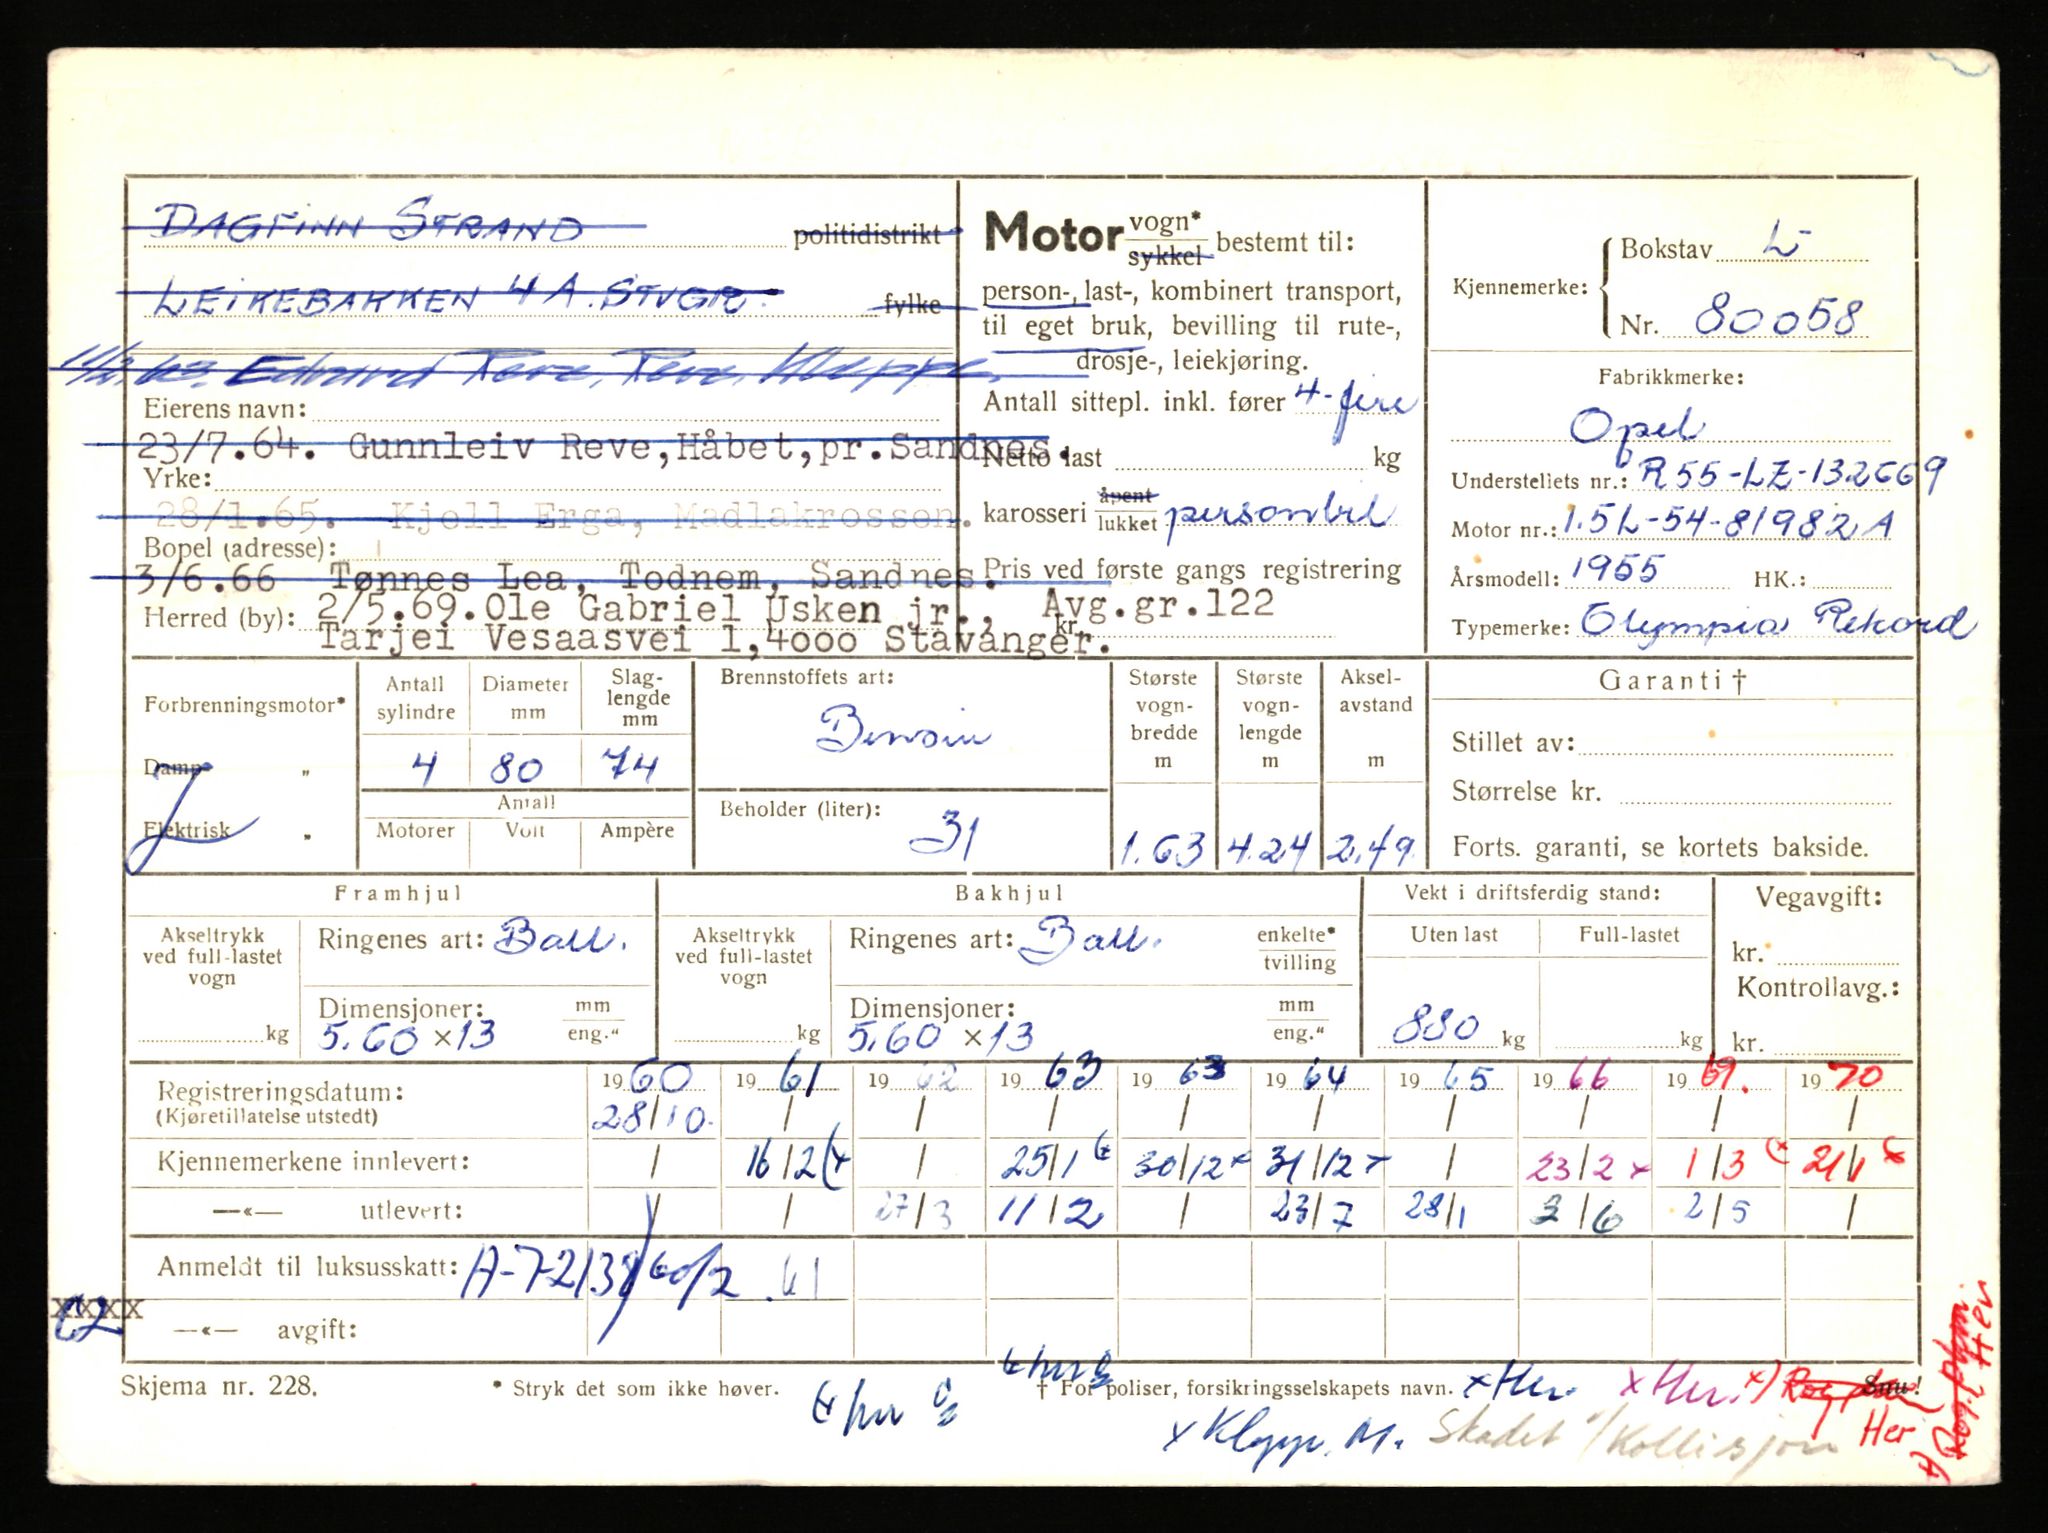 DAGFINN STRAND politidistrikt
LEIKEBAKKEN 4 A. STVGR. fylke
11/2.63. Edvard Reve, Reve, Kleppe.
Eierens navn:
23/7.64. Gunnleiv Reve, Håbet, pr. Sandnes.
Yrke:
28/1.65. Kjell Erga, Madlakrossen.
Bopel (adresse):
3/6.66 Tønnes Lea, Todnem, Sandnes.
Herred (by): 2/5.69. Ole Gabriel Usken jr., Avg.gr.122
Tarjei Vesaasvei 1, 4000 Stavanger.
Motor vogn* sykkel bestemt til:
person-, last-, kombinert transport,
til eget bruk, bevilling til rute-,
drosje-, leiekjøring.
Antall sittepl. inkl. fører 4-fire
Netto last kg
karosseri åpent lukket personbil
Pris ved første gangs registrering
kr.
Kjennemerke: Bokstav L-
Nr. 80058
Fabrikkmerke:
Opel
Understellets nr.: R55-LZ-132669
Motor nr.: 1.5L-54-81982A
Årsmodell: 1955 HK.:
Typemerke: Olympia Rekord
Forbrenningsmotor*
Damp "
Elektrisk "
Antall sylindre Diameter mm Slaglengde mm
4 80 74
Antall
Motorer Volt Ampère
Brennstoffets art:
Bensin
Beholder (liter): 31
Største vognbredde m Største vognlengde m Akselavstand m
1.63 4.24 2.49
Garanti †
Stillet av:
Størrelse kr.
Forts. garanti, se kortets bakside.
Framhjul
Akseltrykk ved full-lastet vogn kg
Ringenes art: Ball.
Dimensjoner: mm eng."
5.60 x 13
Bakhjul
Akseltrykk ved full-lastet vogn kg
Ringenes art: Ball. enkelte* tvilling
Dimensjoner: mm eng."
5.60 x 13
Vekt i driftsferdig stand:
Uten last Full-lastet
880 kg kg
Vegavgift:
kr.
Kontrollavg.:
kr.
Registreringsdatum: 1960 1961 1962 1963 1963 1964 1965 1966 1969. 1970
(Kjøretillatelse utstedt) 28/10.
Kjennemerkene innlevert: 16/2 25/1 30/12 x 31/12 x 23/2 x 1/3 21/1
—«— utlevert: 27/3 11/2 23/7 28/1 3/6 2/5
Anmeldt til luksusskatt: A-72138 61
xxxx
—«— avgift:
Skjema nr. 228. * Stryk det som ikke høver. † For poliser, forsikringsselskapets navn. x Her. x Her. Snu!
x Klepp. M. Skadet v/Kollisjon Her
Her